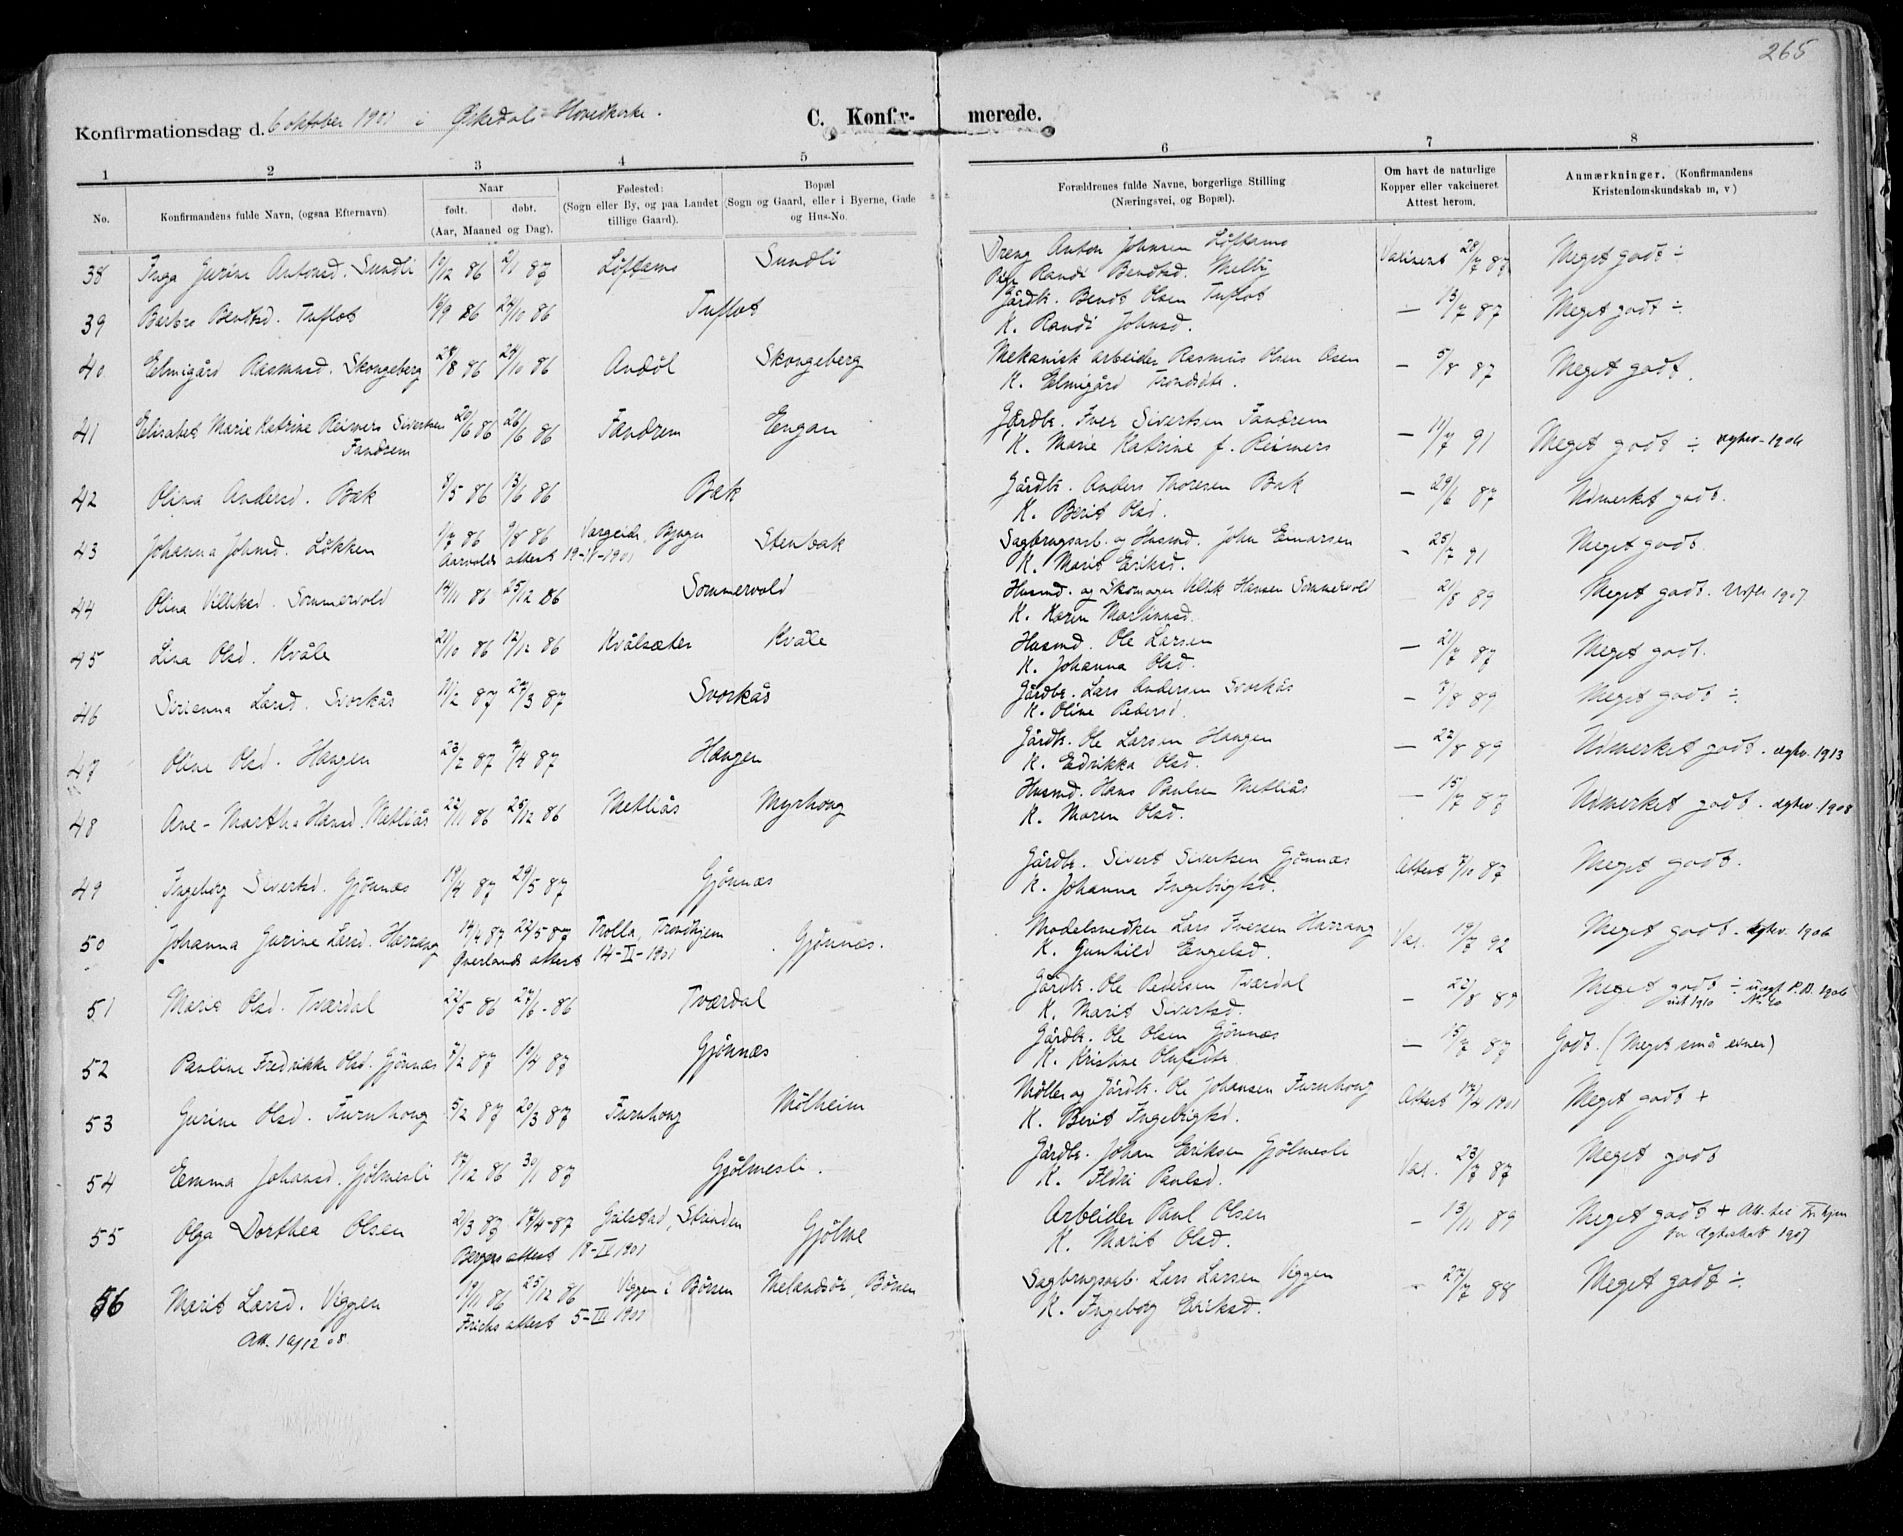 265
Konfirmationsdag d. 6 oktober 1901 i Ørkedals Hovedkirke.
C. Konfirmerede.
1 2 3 4 5 6 7 8
No. Konfirmandens fulde Navn, (ogsaa Efternavn) Naar født. døbt. (Aar, Maaned og Dag). Fødested: (Sogn eller By, og paa Landet tillige Gaard). Bopæl (Sogn og Gaard, eller i Byerne, Gade og Hus-No. Forældrenes fulde Navne, borgerlige Stilling (Næringsvei, og Bopæl). Om havt de naturlige Kopper eller vakcineret Attest herom. Anmærkninger. (Konfirmandens Kristendomskundskab m, v)
38 Inga Jurine Antonsd. Sundli 10/12 86 2/1 87 Løftamo Sundli Dreng Anton Johnsen Løftamo
Pige Randi Bendtsd. Melby Vakcinert 28/7 87 Meget godt ÷
39 Berbro Bentsd. Tuflot 14/9 86 24/10 86 Tuflot Gårdb. Bendt Olsen Tuflot
K. Randi Johnsd. — 13/7 87 Meget godt ÷
40 Elmigård Rasmusd. Skongeberg 28/8 86 24/10 86 Andøl Skongeberg Mekanisk arbeider Rasmus Olsen Osen
K. Elmigård Trondsdtr. — 5/8 87 Meget godt.
41 Elisabet Marie Katrine Reimers Sivertsen 20/6 86 26/6 86 Fandrem Engan Gårdb. Iver Sivertsen Fandrem
Fandrem K. Marie Katrine f. Reimers — 11/7 91 Meget godt ÷ ægtev. 1906
42 Olina Andersd. Bæk 8/5 86 13/6 86 Bæk Gårdb. Anders Thoresen Bæk
K. Berit Olsd. — 29/6 87 Udmerket godt.
43 Johanna Johnsd. Løkken 1/7 86 9/8 86 Stenbæk Sagbrugsarb. og Husmd. John Einarsen
attest 19-IV-1901 K. Marit Eriksd. - 25/7 91 Meget godt.
44 Olina Villiksd. Sommervold 14/11 86 25/12 86 Sommervold Husmd. og Skomager Villik Hansen Sommervold
K. Karen Martinusd. — 21/8 89 Meget godt. 1907
45 Lina Olsd. Kvåle 21/10 86 12/12 86 Kvålsæter Kvåle Husmd. Ole Larsen
K. Johanna Olsd. — 21/7 87 Meget godt.
46 Sirianna Larsd. Svorkås 11/2 87 27/3 87 Svorkås Gårdb. Lars Andersen Svorkås
K. Oline Pedersd. — 7/8 89 Meget godt ÷
47 Oline Olsd. Hangen 23/2 87 7/4 87 Hangen Gårdb. Ole Larsen Hangen
K. Edrikka Olsd. — 22/8 89 Udmerket godt. ægtev. 1913
48 Ane-Martha Hansd. Metliås 22/11 86 25/12 86 Metliås Myrhoug Husmd. Hans Paulsen Metliås
K. Maren Olsd. — 15/7 87 Udmerket godt. ægtev. 1908
49 Ingeborg Sivertsd. Gjønnæs 19/4 87 29/5 87 Gjønnæs Gårdb. Sivert Sivertsen Gjønnæs
K. Johanna Ingebrigtsd. Attest 7/11 87 Meget godt.
50 Johanna Gurine Larsd. Harrang 14/4 87 22/5 87 Trolla, Trondhjem Gjønnæs. Modelsnedker Lars Iversen Harrang
Øverlands attest 14-II-1901 K. Gunhild Engelsd. Vac. 19/7 92 Meget godt. ægtev. 1906
51 Marie Olsd. Tværdal 22/5 86 27/6 - 86 Tværdal Gårdb. Ole Pedersen Tværdal
K. Marit Sivertsd. — 22/8 89 Meget godt ÷ 1906
52 Pauline Fredrikke Olsd. Gjønnæs 7/2 87 10/4 87 Gjønnæs Gårdb. Ole Olsen Gjønnæs
K. Kristine Olufsdtr. — 15/7 87 Godt. (Meget små evner)
53 Gurine Olsd. Furuhoug 5/2 87 20/3 87 Furuhoug Mølheim Møller og Gårdb. Ole Johansen Furuhoug
K. Berit Ingebrigtsd. Attest 17/4 1901 Meget godt +
54 Emma Johansd. Gjølmesli 17/12 86 30/1 87 Gjølmesli. Gårdb. Johan Eriksen Gjølmesli
K. Ildri Paulsd. Vac. 23/7 87 Meget godt
55 Olga Dorthea Olsen 2/3 87 17/4-87 Strinden Gjølme Arbeider Paul Olsen
Bergs attest 18-IV 1901 K. Marit Olsd. — 13/11 89 Meget godt + Att. her Tr.hjem
for Ægteskab 1907
56 Marit Larsd. Viggen 19/11 86 25/12 86 Viggen i Børsen Melandsø, Børsen Sagbrugsarb. Lars Larsen Viggen
Att. 19/12 08. Frichs attest 5-III 1901 K. Ingeborg Eriksd. — 27/7 88 Meget godt ÷